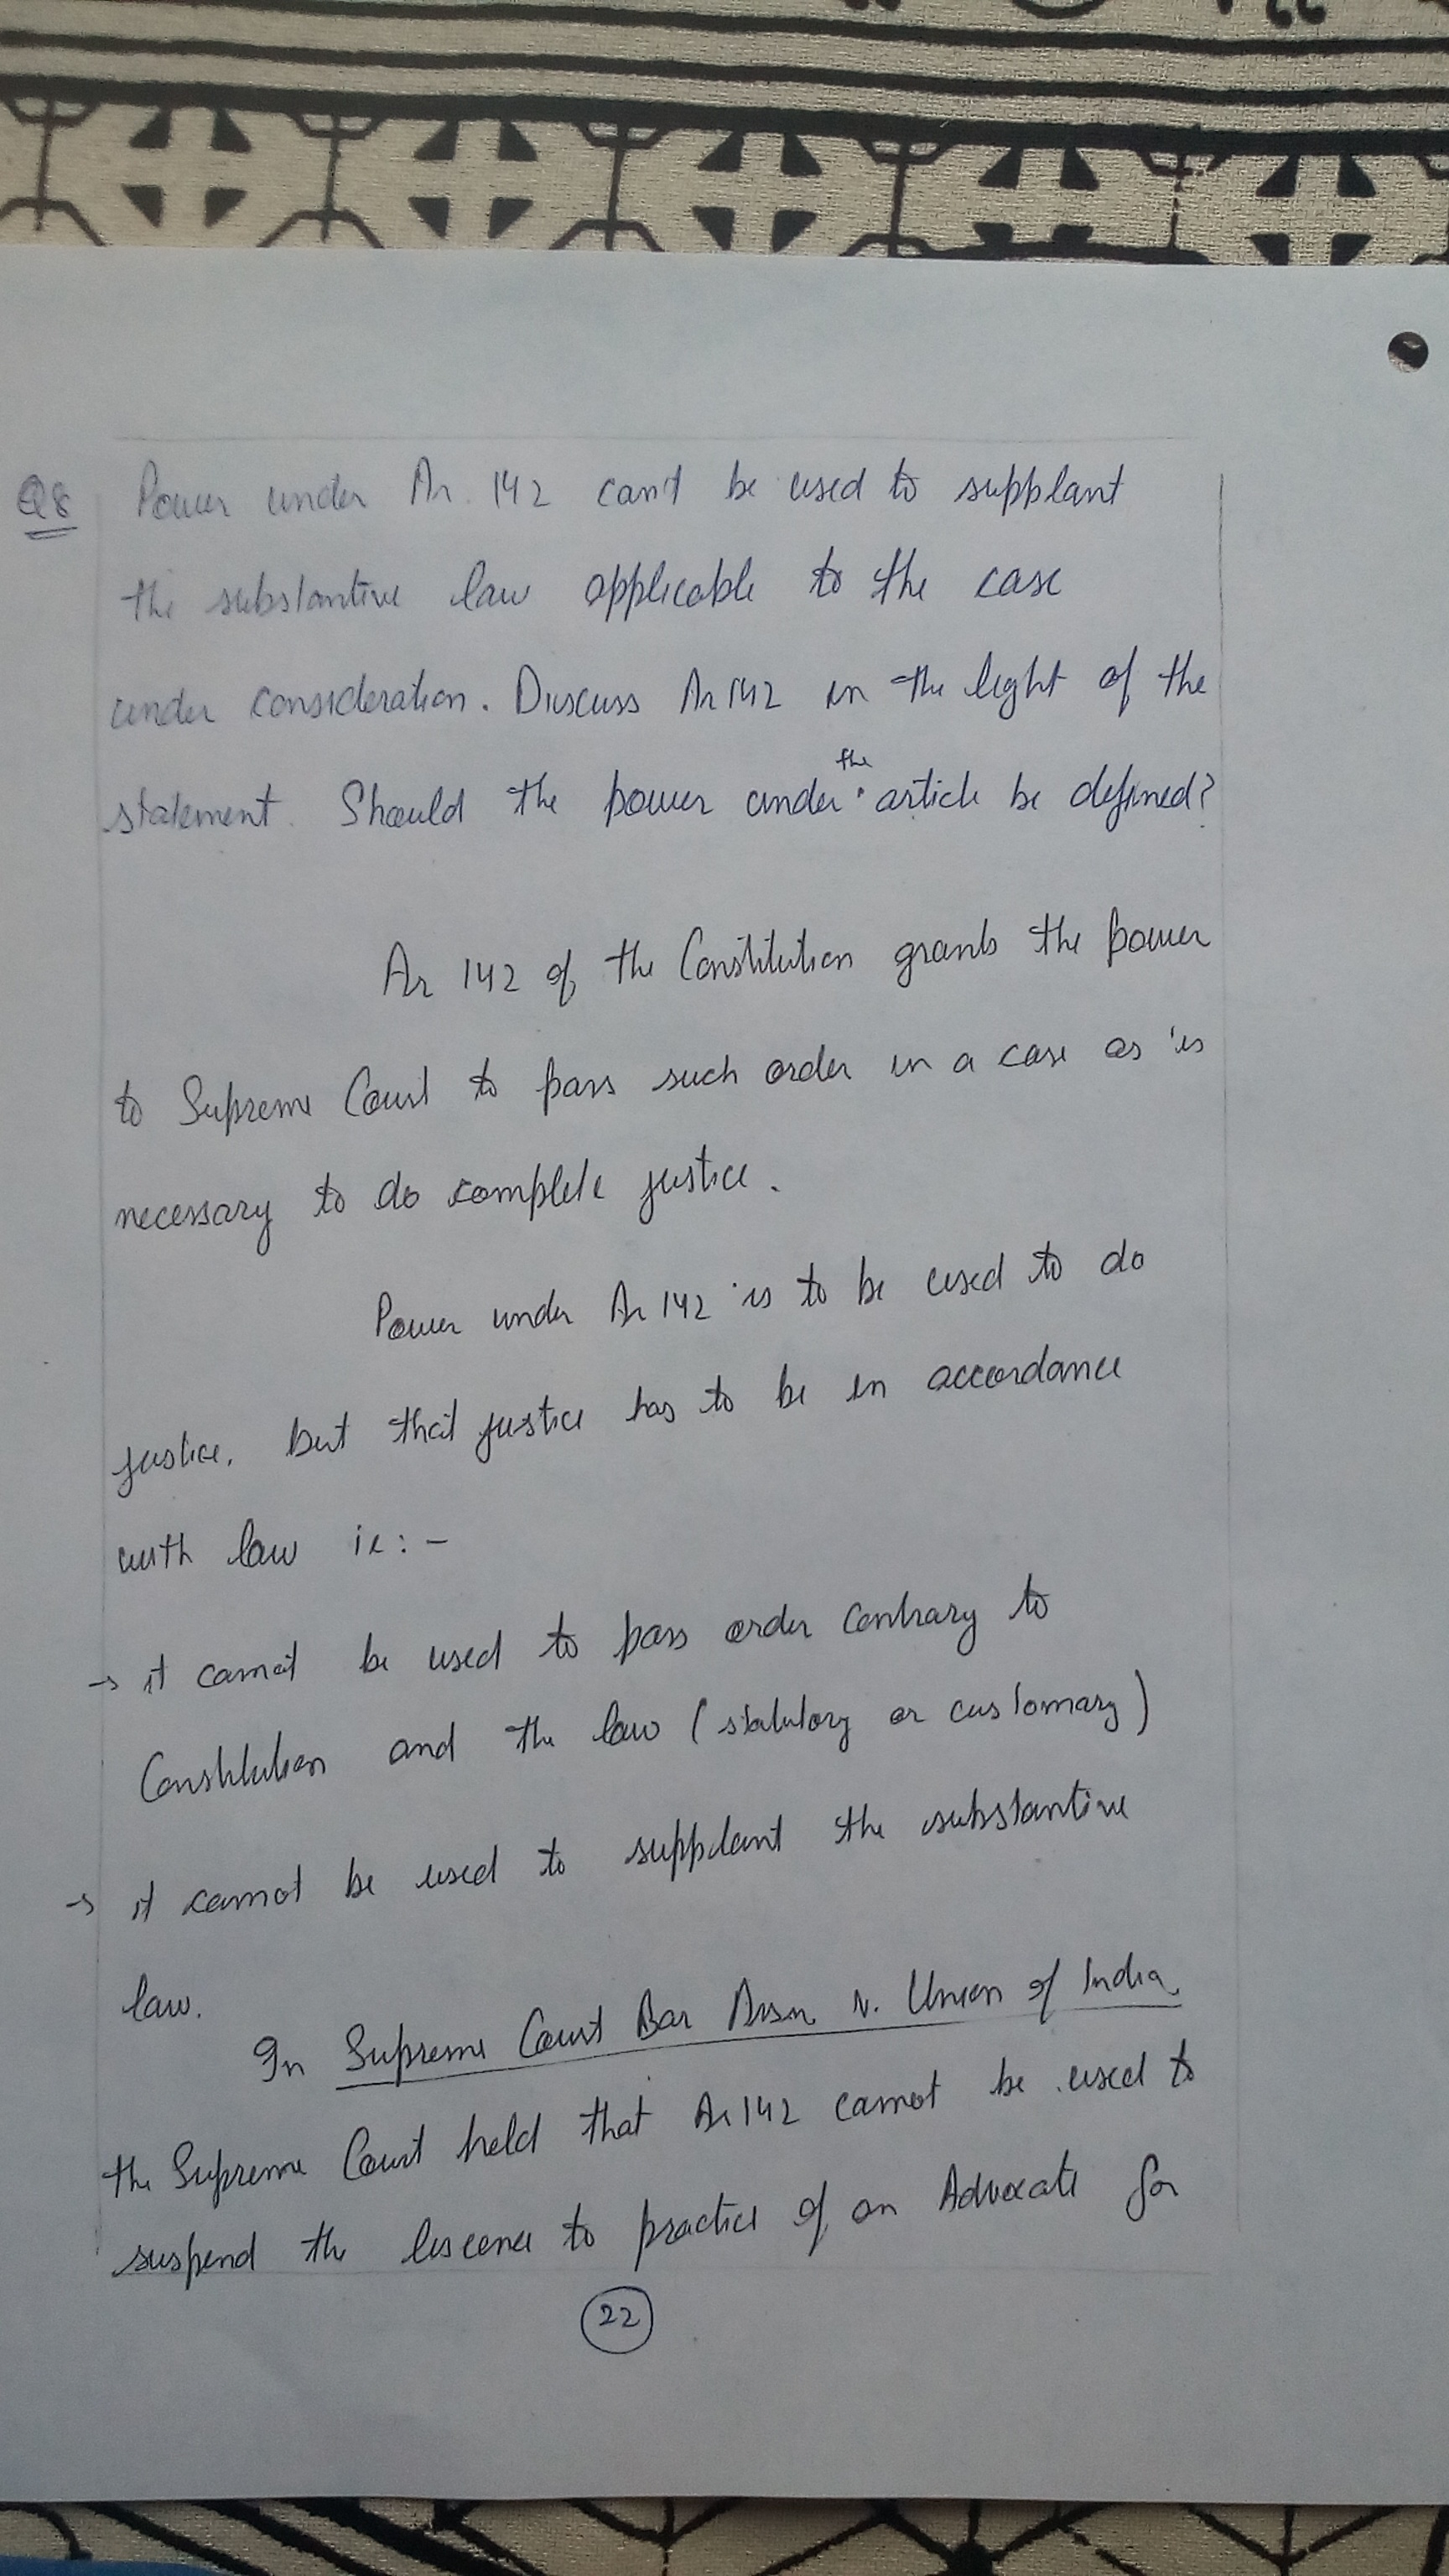 Q8 Power under Ar. 142 can't be used to supplant
the substantive law applicable to the case
under consideration. Discuss Ar 142 in the light of the
statement. Should the power under the article be defined?
Ar 142 of the Constitution grants the power
to Supreme Court to pass such order in a case as is
necessary to do complete justice.
Power under Ar 142 is to be used to do
justice, but that justice has to be in accordance
with law ie:-
→ it cannot be used to pass order contrary to
Constitution and the law (statutory or customary)
→ it cannot be used to supplant the substantive
law.
In Supreme Court Bar Assn v. Union of India,
the Supreme Court held that Ar 142 cannot be used to
suspend the liscence to practice of an Advocate for
22